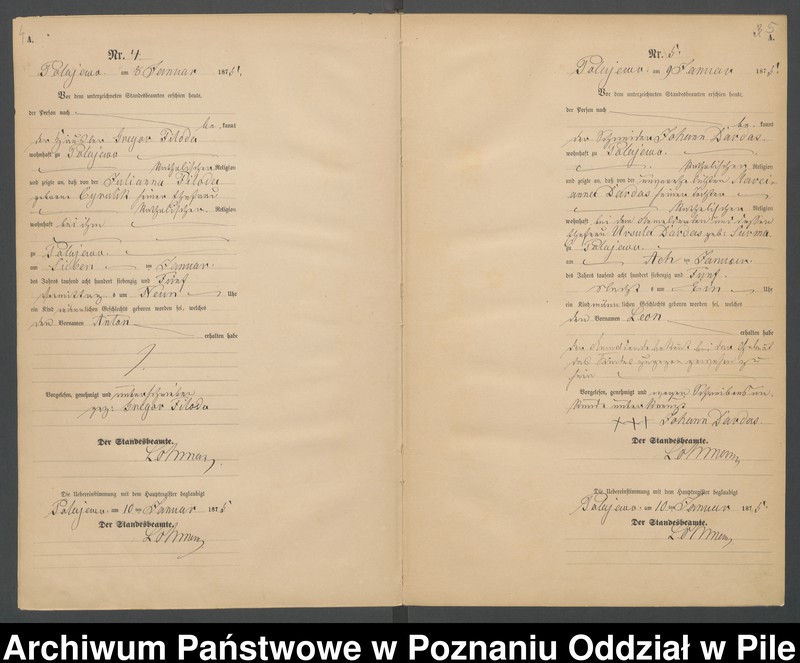 4
A.
Nr. 4
Polajewo am 8 Januar 1875.
Vor dem unterzeichneten Standesbeamten erschien heute,
der Person nach
be kannt
der Häusler Gregor Filoda
wohnhaft zu Polajewo
katholischer Religion
und zeigte an, daß von der Julianna Filoda
geborene seiner Ehefrau
katholischer Religion
wohnhaft bei ihm
zu Polajewo
am Sieben ten Januar
des Jahres tausend acht hundert siebenzig und Fünf
Vormittags um Neun Uhr
ein Kind männlichen Geschlechts geboren worden sei, welches
den Vornamen Anton
erhalten habe
Vorgelesen, genehmigt und unterschrieben
gez: Gregor Filoda
Der Standesbeamte.
Lohmann
Die Uebereinstimmung mit dem Hauptregister beglaubigt
Polajewo am 10 ten Januar 1875
Der Standesbeamte.
Lohmann
5
A.
Nr. 5.
Polajewo am 9 Januar 1875.
Vor dem unterzeichneten Standesbeamten erschien heute,
der Person nach
be kannt
der Johann Dardas
wohnhaft zu Polajewo
katholischer Religion
und zeigte an, daß von der unverehelichten Marci-
anna Dardas seiner Tochter
katholischer Religion
wohnhaft bei dem und dessen
Ehefrau Ursula Dardas geb: Surma
zu Polajewo
am Acht ten Januar
des Jahres tausend acht hundert siebenzig und Fünf
um Ein Uhr
ein Kind männlichen Geschlechts geboren worden sei, welches
den Vornamen Leon
erhalten habe
bei der Geburt
des Kindes zugegen gewesen zu
sein
Vorgelesen, genehmigt und wegen Schreibensun-
kunde unterkreuzt
+++ Johann Dardas
Der Standesbeamte.
Lohmann
Die Uebereinstimmung mit dem Hauptregister beglaubigt
Polajewo am 10 ten Januar 1875.
Der Standesbeamte.
Lohmann
Archiwum Państwowe w Poznaniu Oddział w Pile